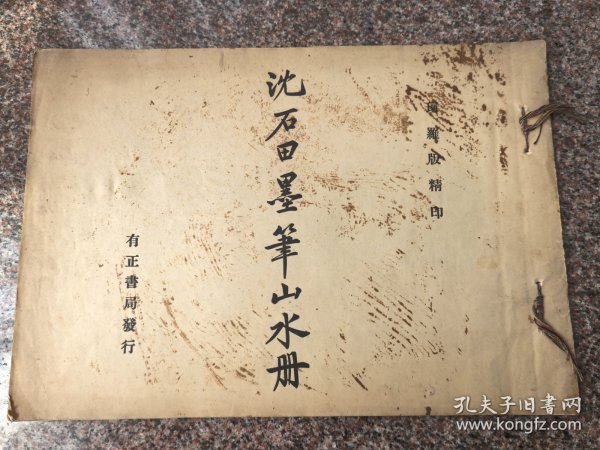 珂羅版精印
沈石田墨筆山水册
有正書局發行
孔夫子旧書网
www.kongfz.com